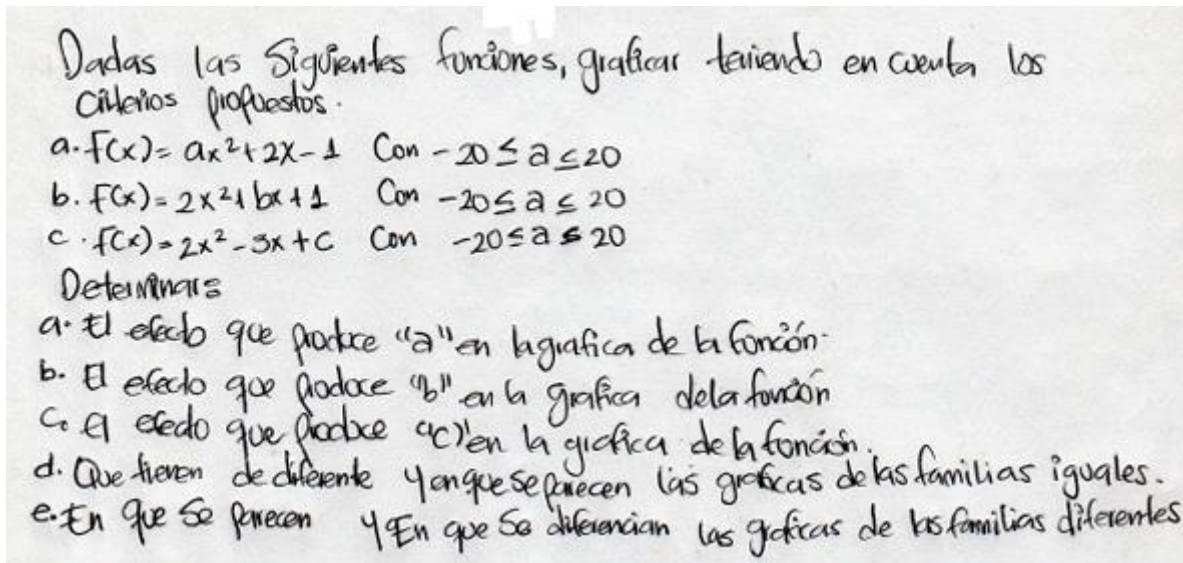 Dadas las Siguientes funciones, graficar teniendo en cuenta los
criterios propuestos.
a. f(x) = ax² + 2x - 1 Con - 20 ≤ a ≤ 20
b. f(x) = 2x² + bx + 1 Con - 20 ≤ a ≤ 20
c. f(x) = 2x² - 3x + c Con - 20 ≤ a ≤ 20
Determinar:
a. El efecto que produce "a" en la grafica de la función.
b. El efecto que produce "b" en la grafica de la función
c. El efecto que produce "c" en la grafica de la función.
d. Que tienen de diferente y en que se parecen las graficas de las familias iguales.
e. En que se parecen y En que se diferencian las graficas de las familias diferentes